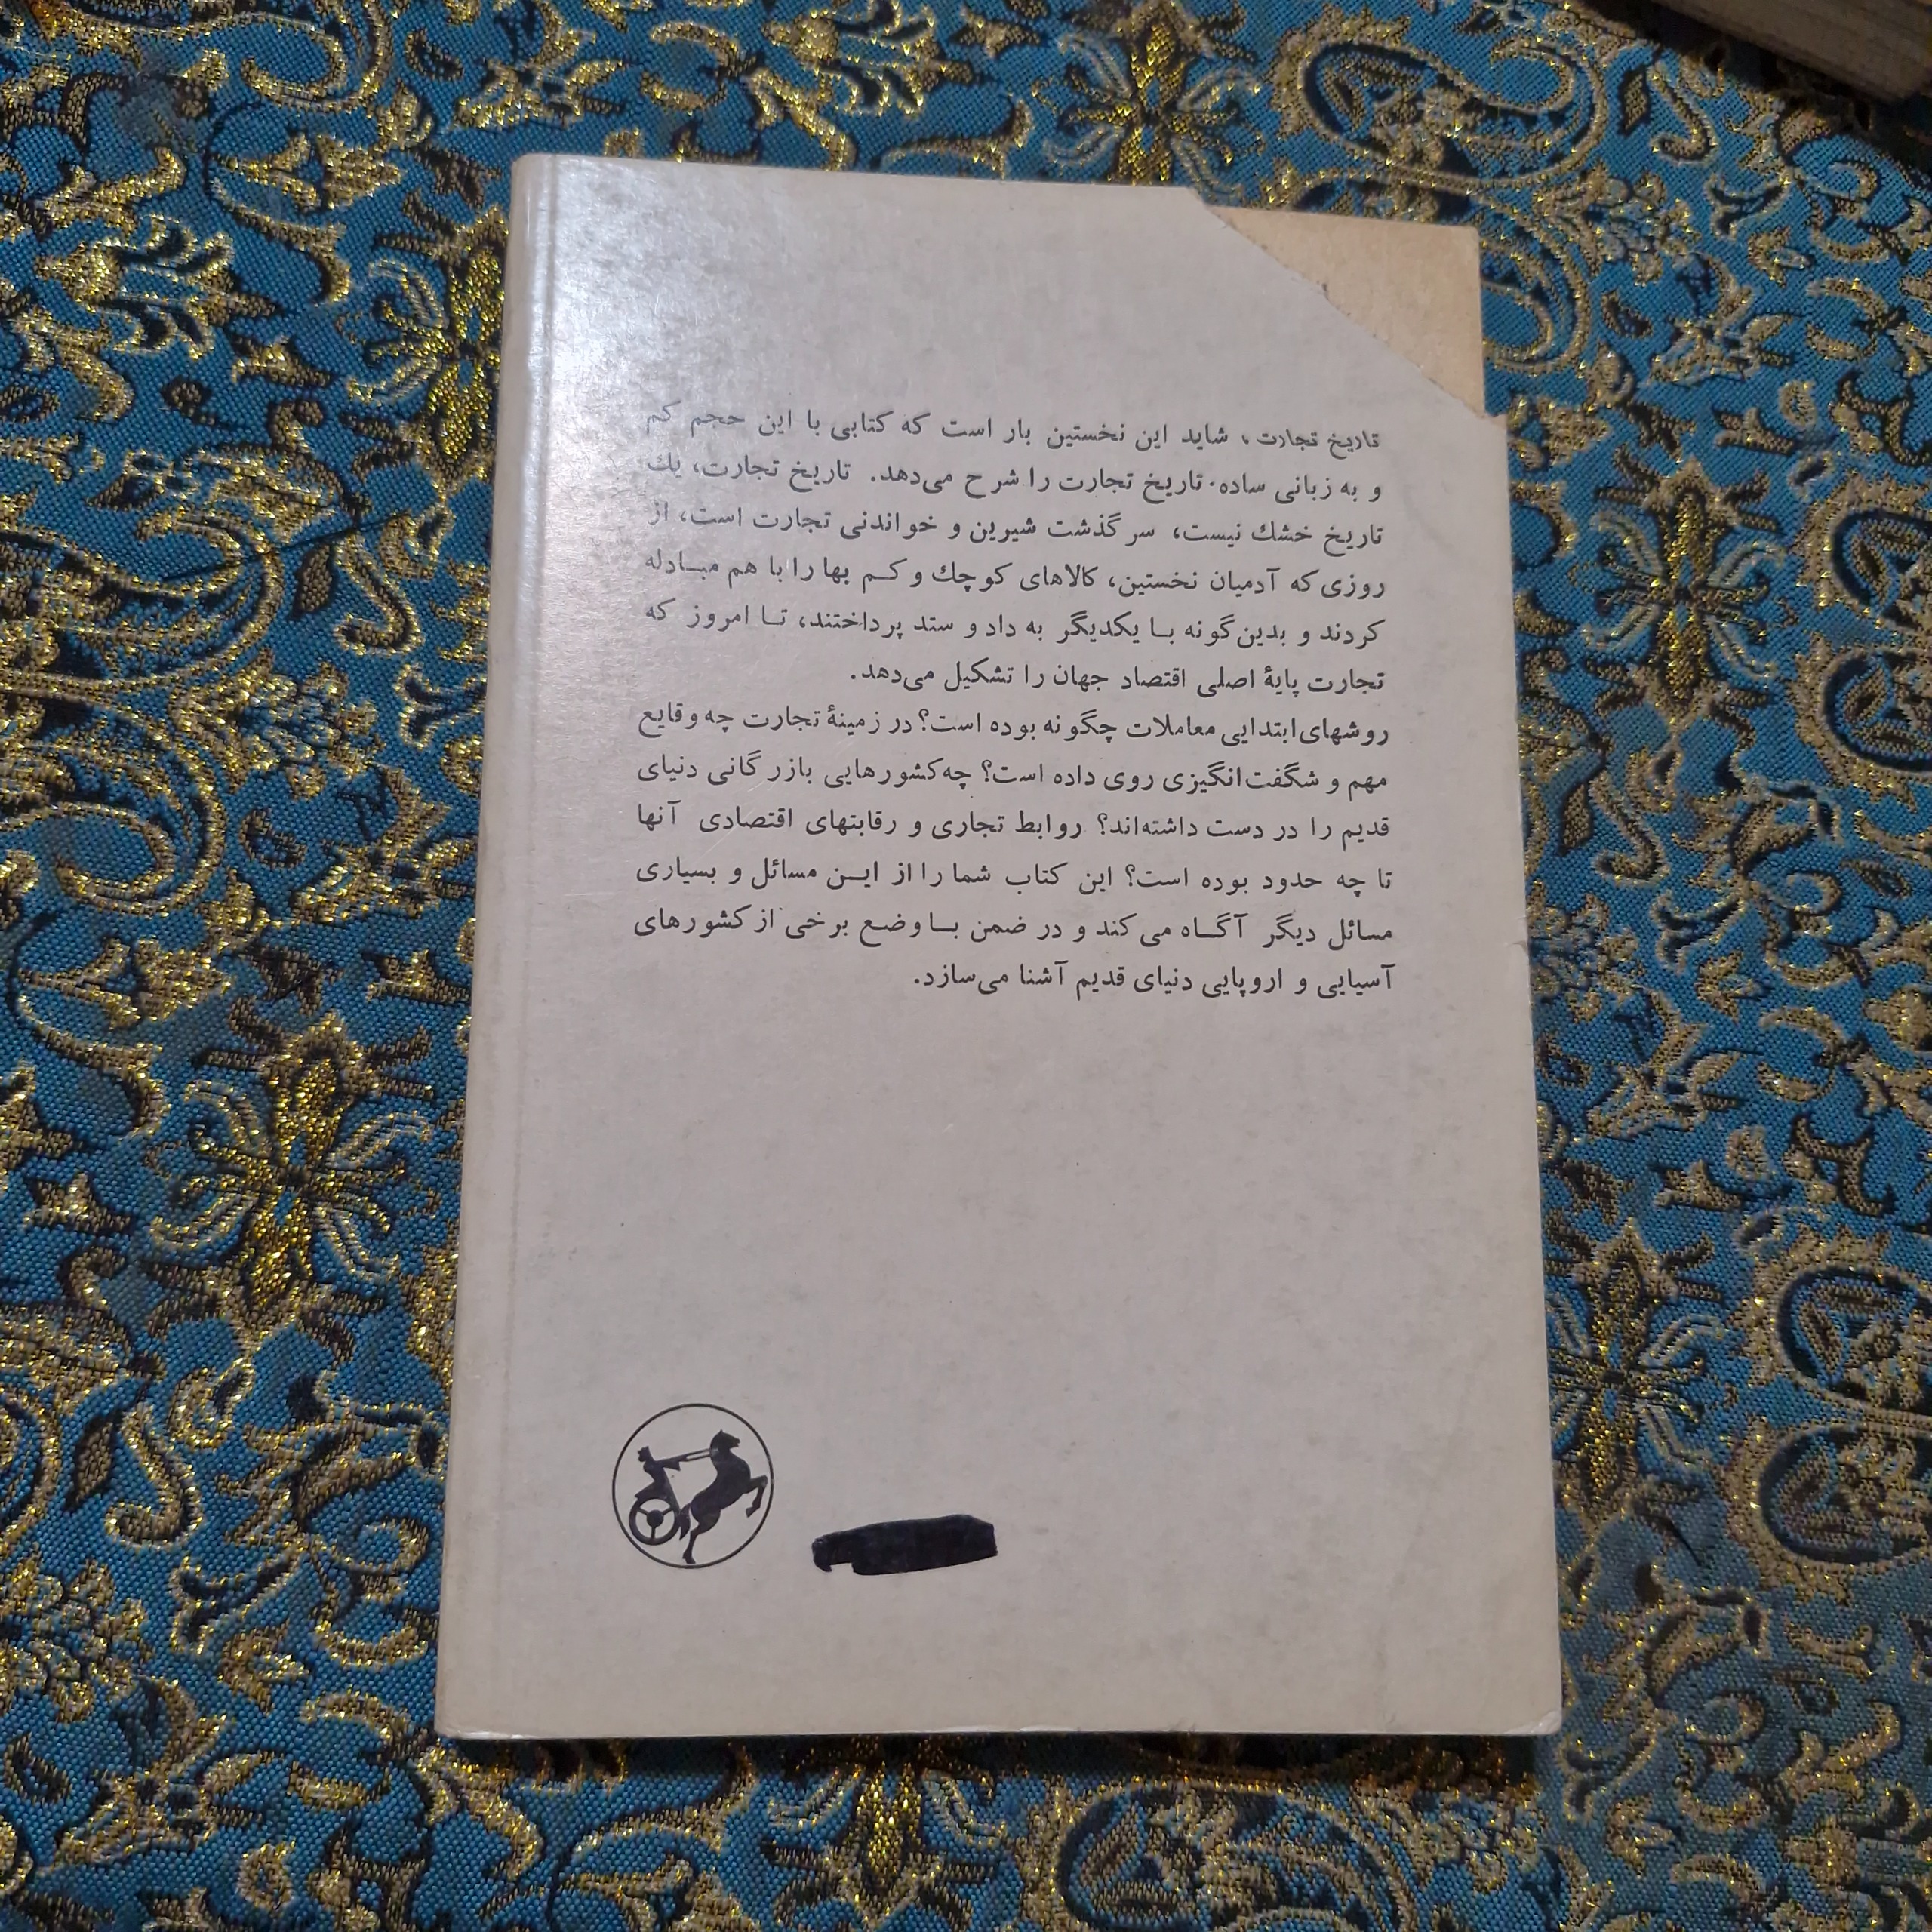 تاریخ تجارت، شاید این نخستین بار است که کتابی با این حجم کم
و به زبانی ساده. تاریخ تجارت را شرح می‌دهد. تاریخ تجارت، یك
تاریخ خشك نیست، سرگذشت شیرین و خواندنی تجارت است، از
روزی که آدمیان نخستین، کالاهای کوچك و کم بها را با هم مبادله
کردند و بدین‌گونه با یکدیگر به داد و ستد پرداختند، تا امروز که
تجارت پایهٔ اصلی اقتصاد جهان را تشکیل می‌دهد.
روشهای ابتدایی معاملات چگونه بوده است؟ در زمینهٔ تجارت چه وقایع
مهم و شگفت‌انگیزی روی داده است؟ چه کشورهایی بازرگانی دنیای
قدیم را در دست داشته‌اند؟ روابط تجاری و رقابتهای اقتصادی آنها
تا چه حدود بوده است؟ این کتاب شما را از این مسائل و بسیاری
مسائل دیگر آگاه می‌کند و در ضمن با وضع برخی از کشورهای
آسیایی و اروپایی دنیای قدیم آشنا می‌سازد.